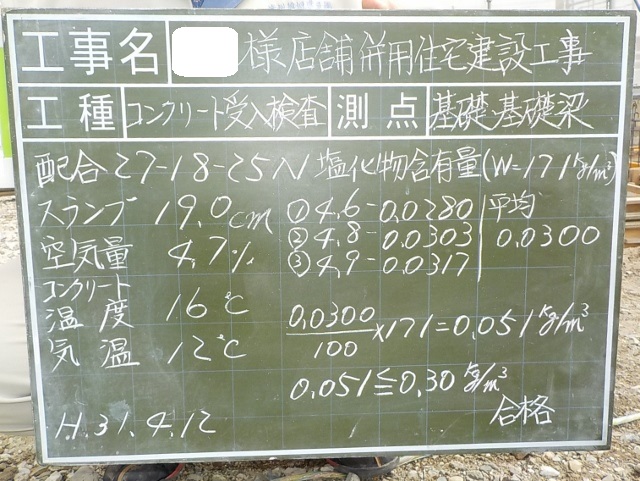 工事名 様店舗併用住宅建設工事
工種 コンクリート受入検査 測点 基礎、基礎梁
配合 27-18-25N 塩化物含有量(W=171kg/m³)
スランプ 19.0cm ①4.6-0.0280 平均
空気量 4.7% ②4.8-0.0303 0.0300
③4.9-0.0317
コンクリート温度 16℃
気温 12℃ 0.0300/100×171=0.051kg/m³
0.051≦0.30kg/m³
H.31.4.12 合格